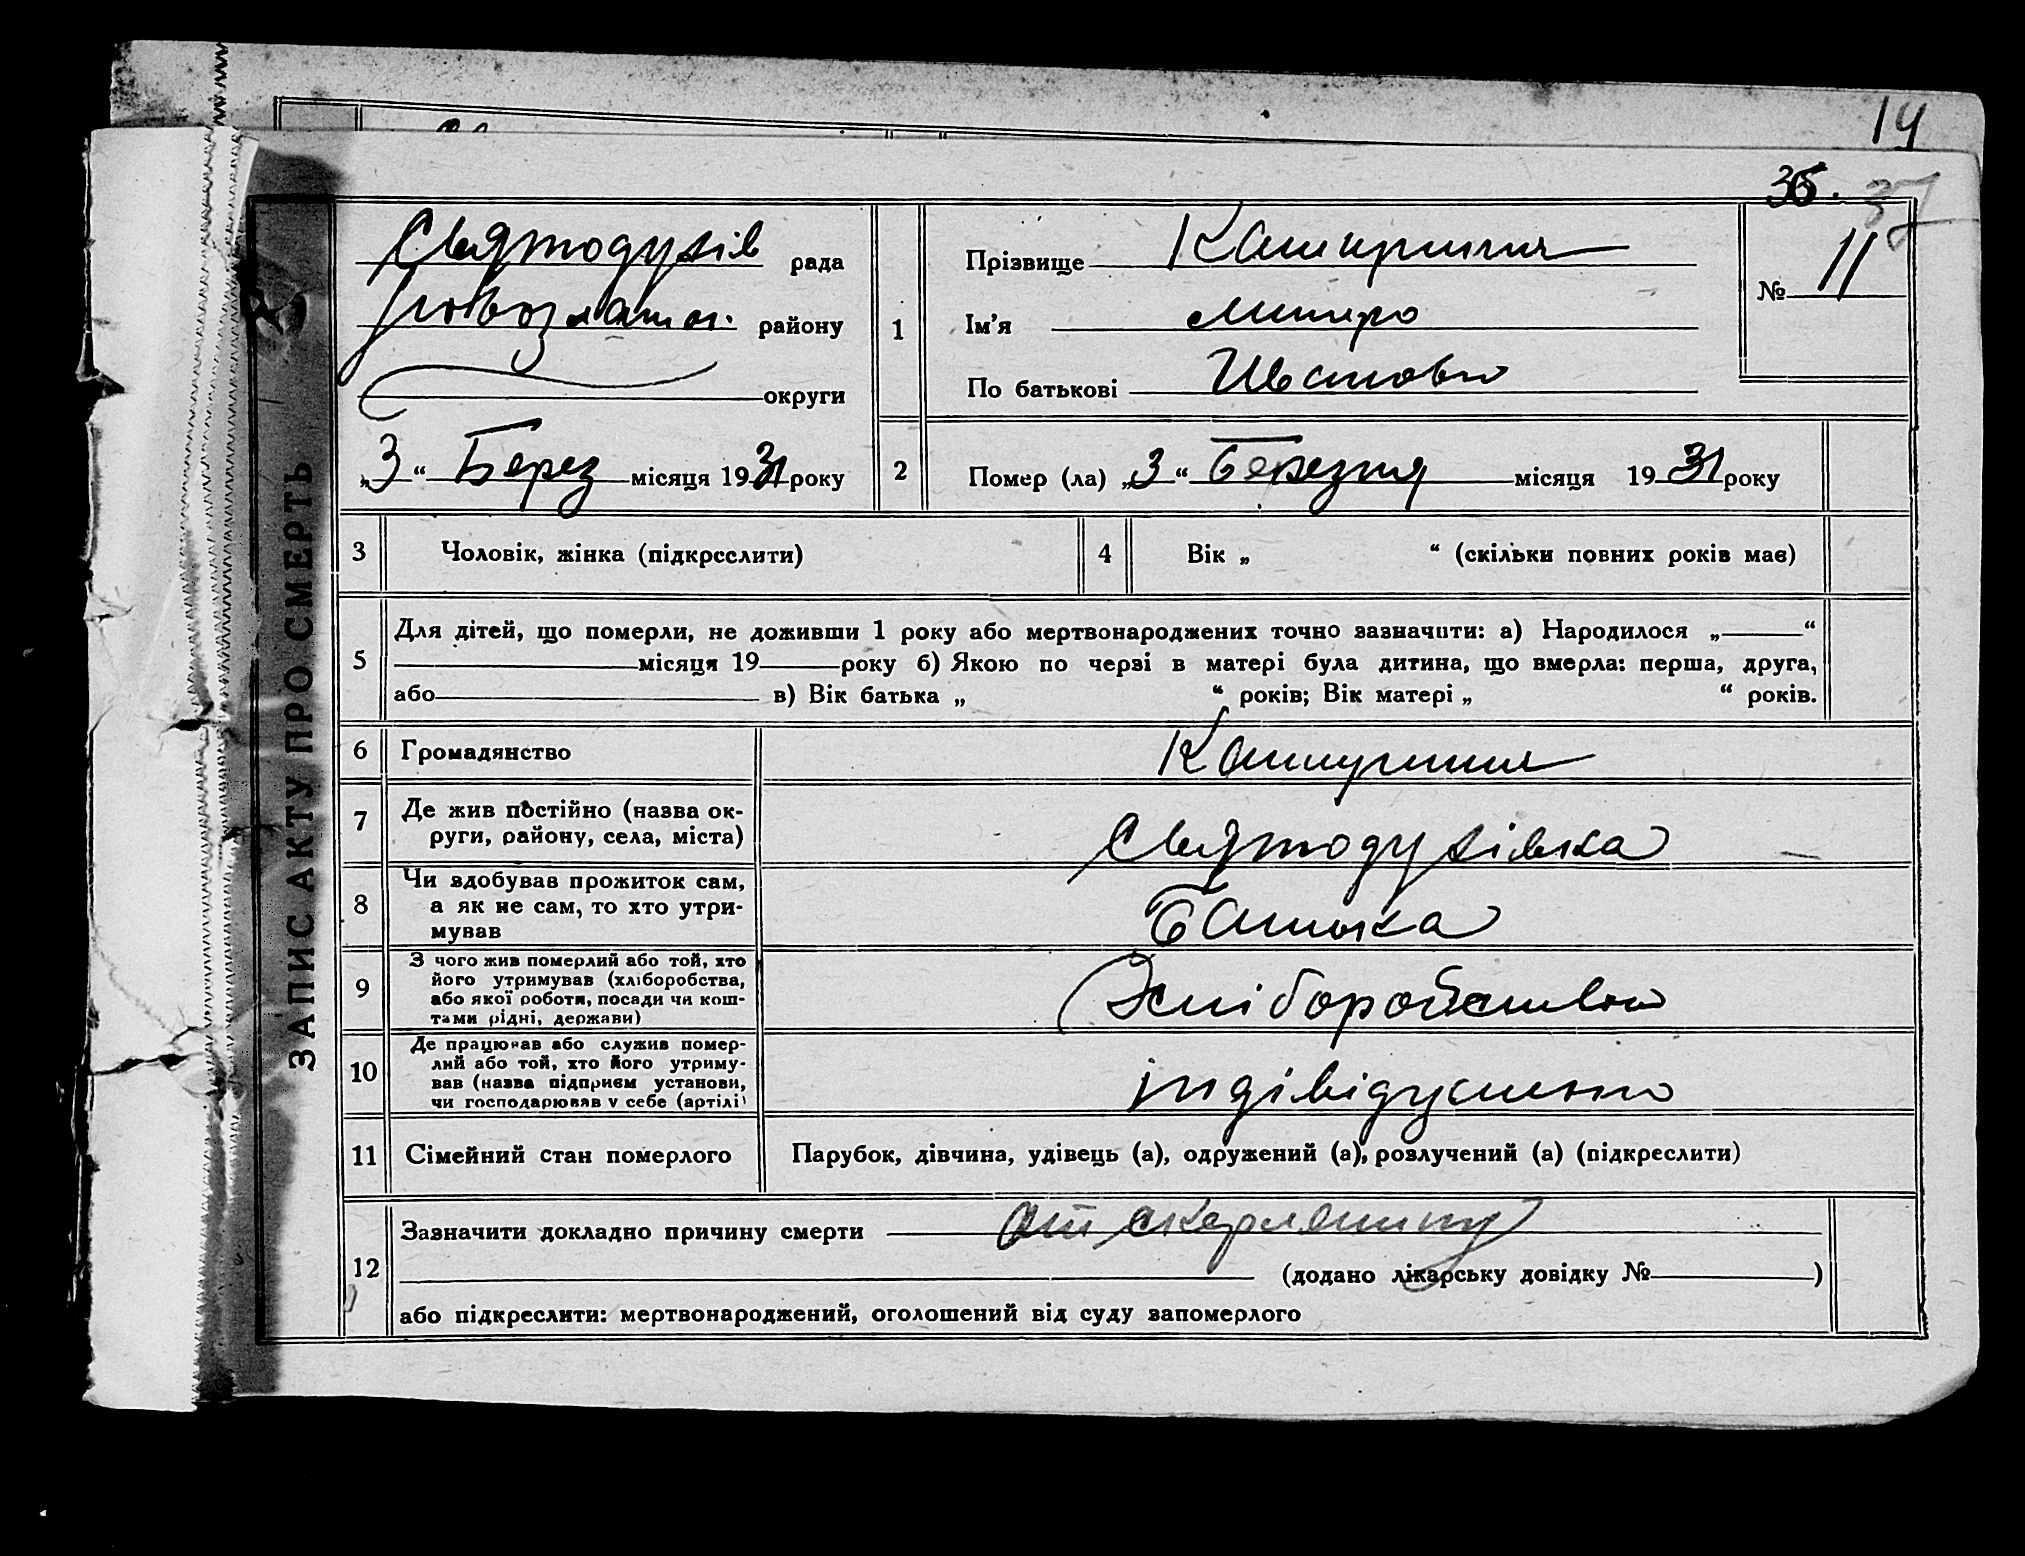 14
36. 37
ЗАПИС АКТУ ПРО СМЕРТЬ
Святодухів рада
району
округи
„3“ Берез місяця 1931 року
1
Прізвище
Ім'я
По батькові Иванов
№ 11
2
Помер (ла) „3“ Березня місяця 1931 року
3 Чоловік, жінка (підкреслити)
4 Вік „ “ (скільки повних років має)
5
Для дітей, що померли, не доживши 1 року або мертвонароджених точно зазначити: а) Народилося „ “
місяця 19 року б) Якою по черзі в матері була дитина, що вмерла: перша, друга,
або в) Вік батька „ “ років; Вік матері „ “ років.
6 Громадянство
7 Де жив постійно (назва ок-
руги, району, села, міста)
Святодухівка
8 Чи здобував прожиток сам,
а як не сам, то хто утри-
мував
Батька
9 З чого жив померлий або той, хто
його утримував (хліборобства,
або якої роботи, посади чи кош-
тами рідні, держави)
Хліборобство
10 Де працював або служив помер-
лий або той, хто його утриму-
вав (назва підприєм установи,
чи господарював у себе (артілі)
індівідуально
11 Сімейний стан померлого
Парубок, дівчина, удівець (а), одружений (а), розлучений (а) (підкреслити)
12
Зазначити докладно причину смерти от
(додано лікарську довідку № )
або підкреслити: мертвонароджений, оголошений від суду запомерлого